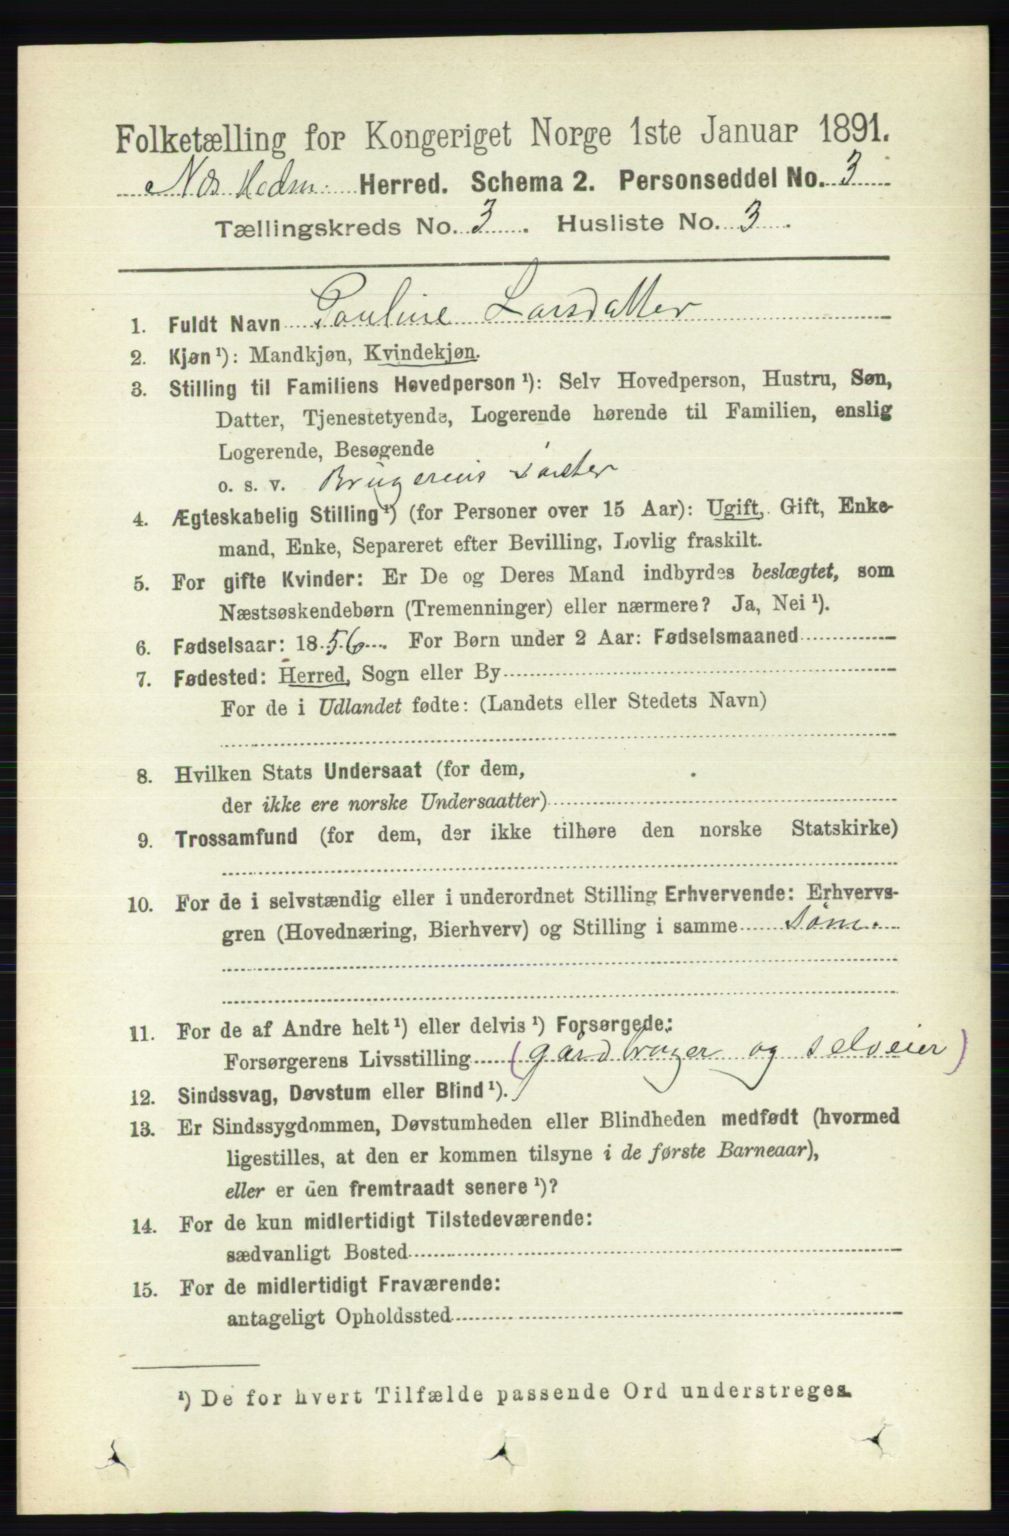 Folketælling for Kongeriget Norge 1ste Januar 1891.
Nes Hedm. Herred. Schema 2. Personseddel No. 3
Tællingskreds No. 3. Husliste No. 3.
1. Fuldt Navn Pauline Larsdatter
2. Kjøn ¹): Mandkjøn, Kvindekjøn.
3. Stilling til Familiens Hovedperson ¹): Selv Hovedperson, Hustru, Søn,
Datter, Tjenestetyende, Logerende hørende til Familien, enslig
Logerende, Besøgende
o. s. v. Brugerens søster
4. Ægteskabelig Stilling ¹) (for Personer over 15 Aar): Ugift, Gift, Enke-
mand, Enke, Separeret efter Bevilling, Lovlig fraskilt.
5. For gifte Kvinder: Er De og Deres Mand indbyrdes beslægtet, som
Næstsøskendebørn (Tremenninger) eller nærmere? Ja, Nei ¹).
6. Fødselsaar: 1856. For Børn under 2 Aar: Fødselsmaaned
7. Fødested: Herred, Sogn eller By
For de i Udlandet fødte: (Landets eller Stedets Navn)
8. Hvilken Stats Undersaat (for dem,
der ikke ere norske Undersaatter)
9. Trossamfund (for dem, der ikke tilhøre den norske Statskirke)
10. For de i selvstændig eller i underordnet Stilling Erhvervende: Erhvervs-
gren (Hovednæring, Bierhverv) og Stilling i samme Søm.
11. For de af Andre helt ¹) eller delvis ¹) Forsørgede:
Forsørgerens Livsstilling (gårdbruger og selveier)
12. Sindssvag, Døvstum eller Blind ¹).
13. Er Sindssygdommen, Døvstumheden eller Blindheden medfødt (hvormed
ligestilles, at den er kommen tilsyne i de første Barneaar),
eller er den fremtraadt senere ¹)?
14. For de kun midlertidigt Tilstedeværende:
sædvanligt Bosted
15. For de midlertidigt Fraværende:
antageligt Opholdssted
¹) De for hvert Tilfælde passende Ord understreges.